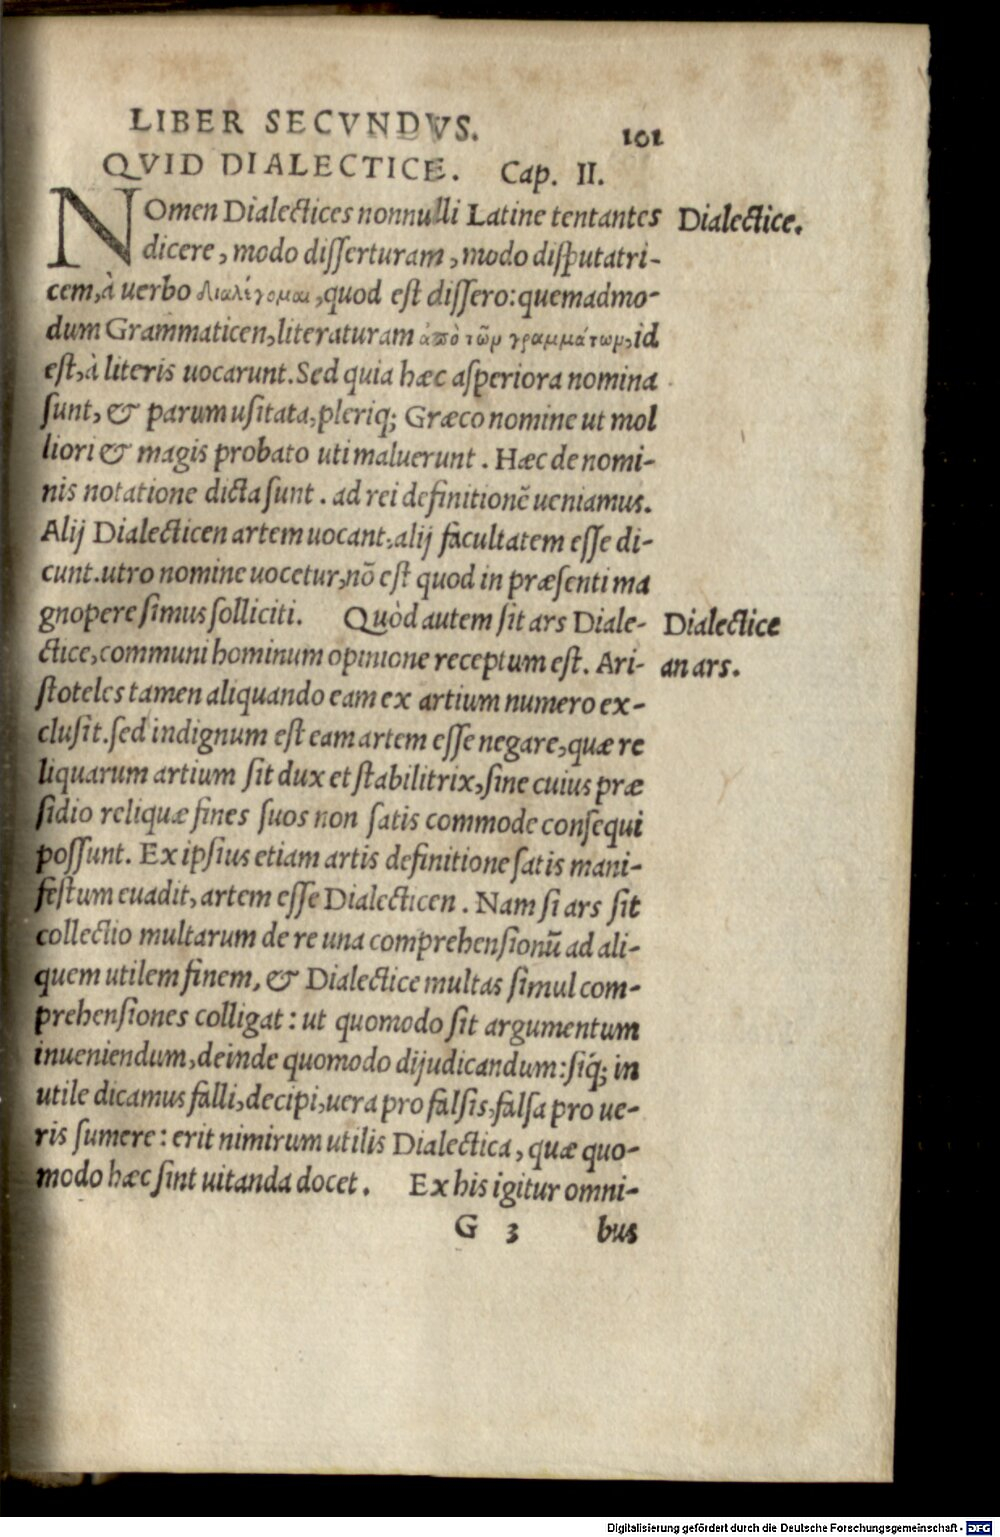 LIBER SECVNDVS.
101
QVID DIALECTICE. Cap. II.
NOmen Dialectices nonnulli Latine tentantes
Dialectice.
dicere, modo disserturam, modo disputatri-
cem, à uerbo διαλέγομαι, quod est dissero: quemadmo-
dum Grammaticen, literaturam ἀπὸ τῶν γραμμάτων, id
est, à literis uocarunt. Sed quia hæc asperiora nomina
sunt, & parum usitata, pleriq; Græco nomine ut mol
liori & magis probato uti maluerunt. Hæc de nomi-
nis notatione dicta sunt. ad rei definitionē ueniamus.
Alij Dialecticen artem uocant, alij facultatem esse di-
cunt. utro nomine uocetur, nō est quod in præsenti ma
gnopere simus solliciti. Quòd autem sit ars Diale-
Dialectice
ctice, communi hominum opinione receptum est. Ari-
an ars.
stoteles tamen aliquando eam ex artium numero ex-
clusit. sed indignum est eam artem esse negare, quæ re
liquarum artium sit dux et stabilitrix, sine cuius præ
sidio reliquæ fines suos non satis commode consequi
possunt. Ex ipsius etiam artis definitione satis mani-
festum euadit, artem esse Dialecticen. Nam si ars sit
collectio multarum de re una comprehensionū ad ali-
quem utilem finem, & Dialectice multas simul com-
prehensiones colligat: ut quomodo sit argumentum
inueniendum, deinde quomodo dijudicandum: siq́; in
utile dicamus falli, decipi, uera pro falsis, falsa pro ue-
ris sumere: erit nimirum utilis Dialectica, quæ quo-
modo hæc sint uitanda docet. Ex his igitur omni-
G 3 bus
Digitalisierung gefördert durch die Deutsche Forschungsgemeinschaft - DFG